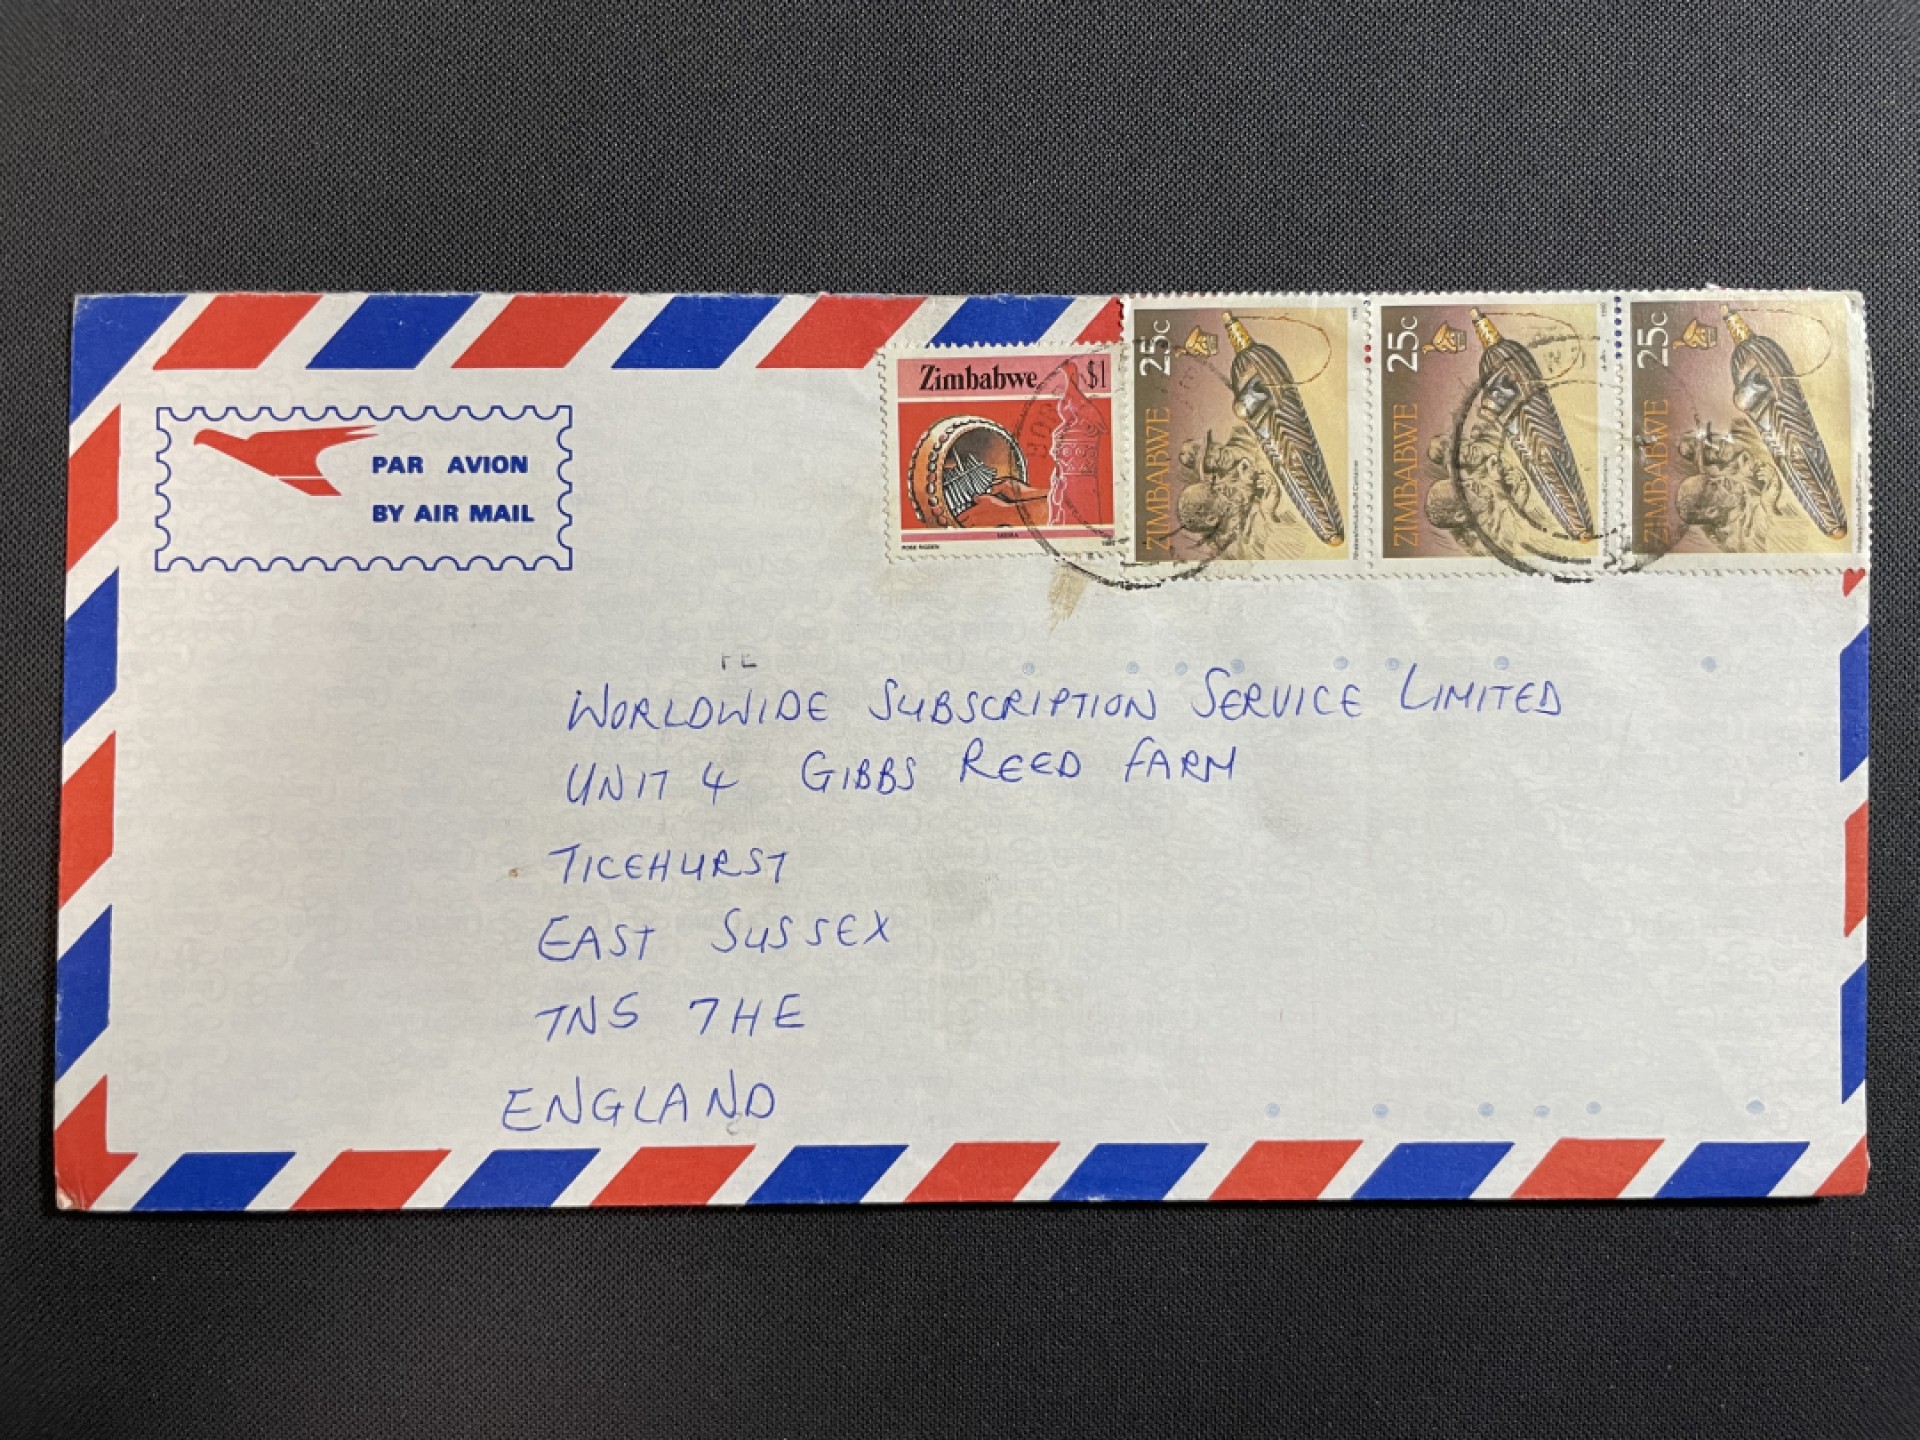 PAR AVION
BY AIR MAIL
Zimbabwe $1
MBIRA
ROSE RIGDEN
25c ZIMBABWE
1990
25c ZIMBABWE
1990
25c ZIMBABWE
WORLDWIDE SUBSCRIPTION SERVICE LIMITED
UNIT 4 GIBBS REED FARM
TICEHURST
EAST SUSSEX
TN5 7HE
ENGLAND